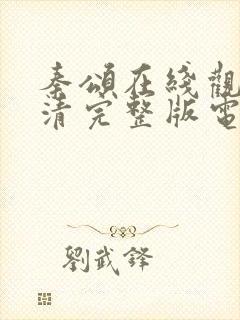 秦頌在綫觀
清完整版電
劉武鋒